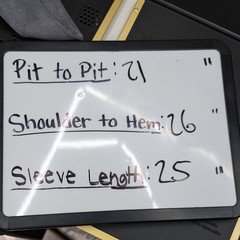 Pit to Pit: 21 "
Shoulder to Hem: 26 "
Sleeve Length: 25 "